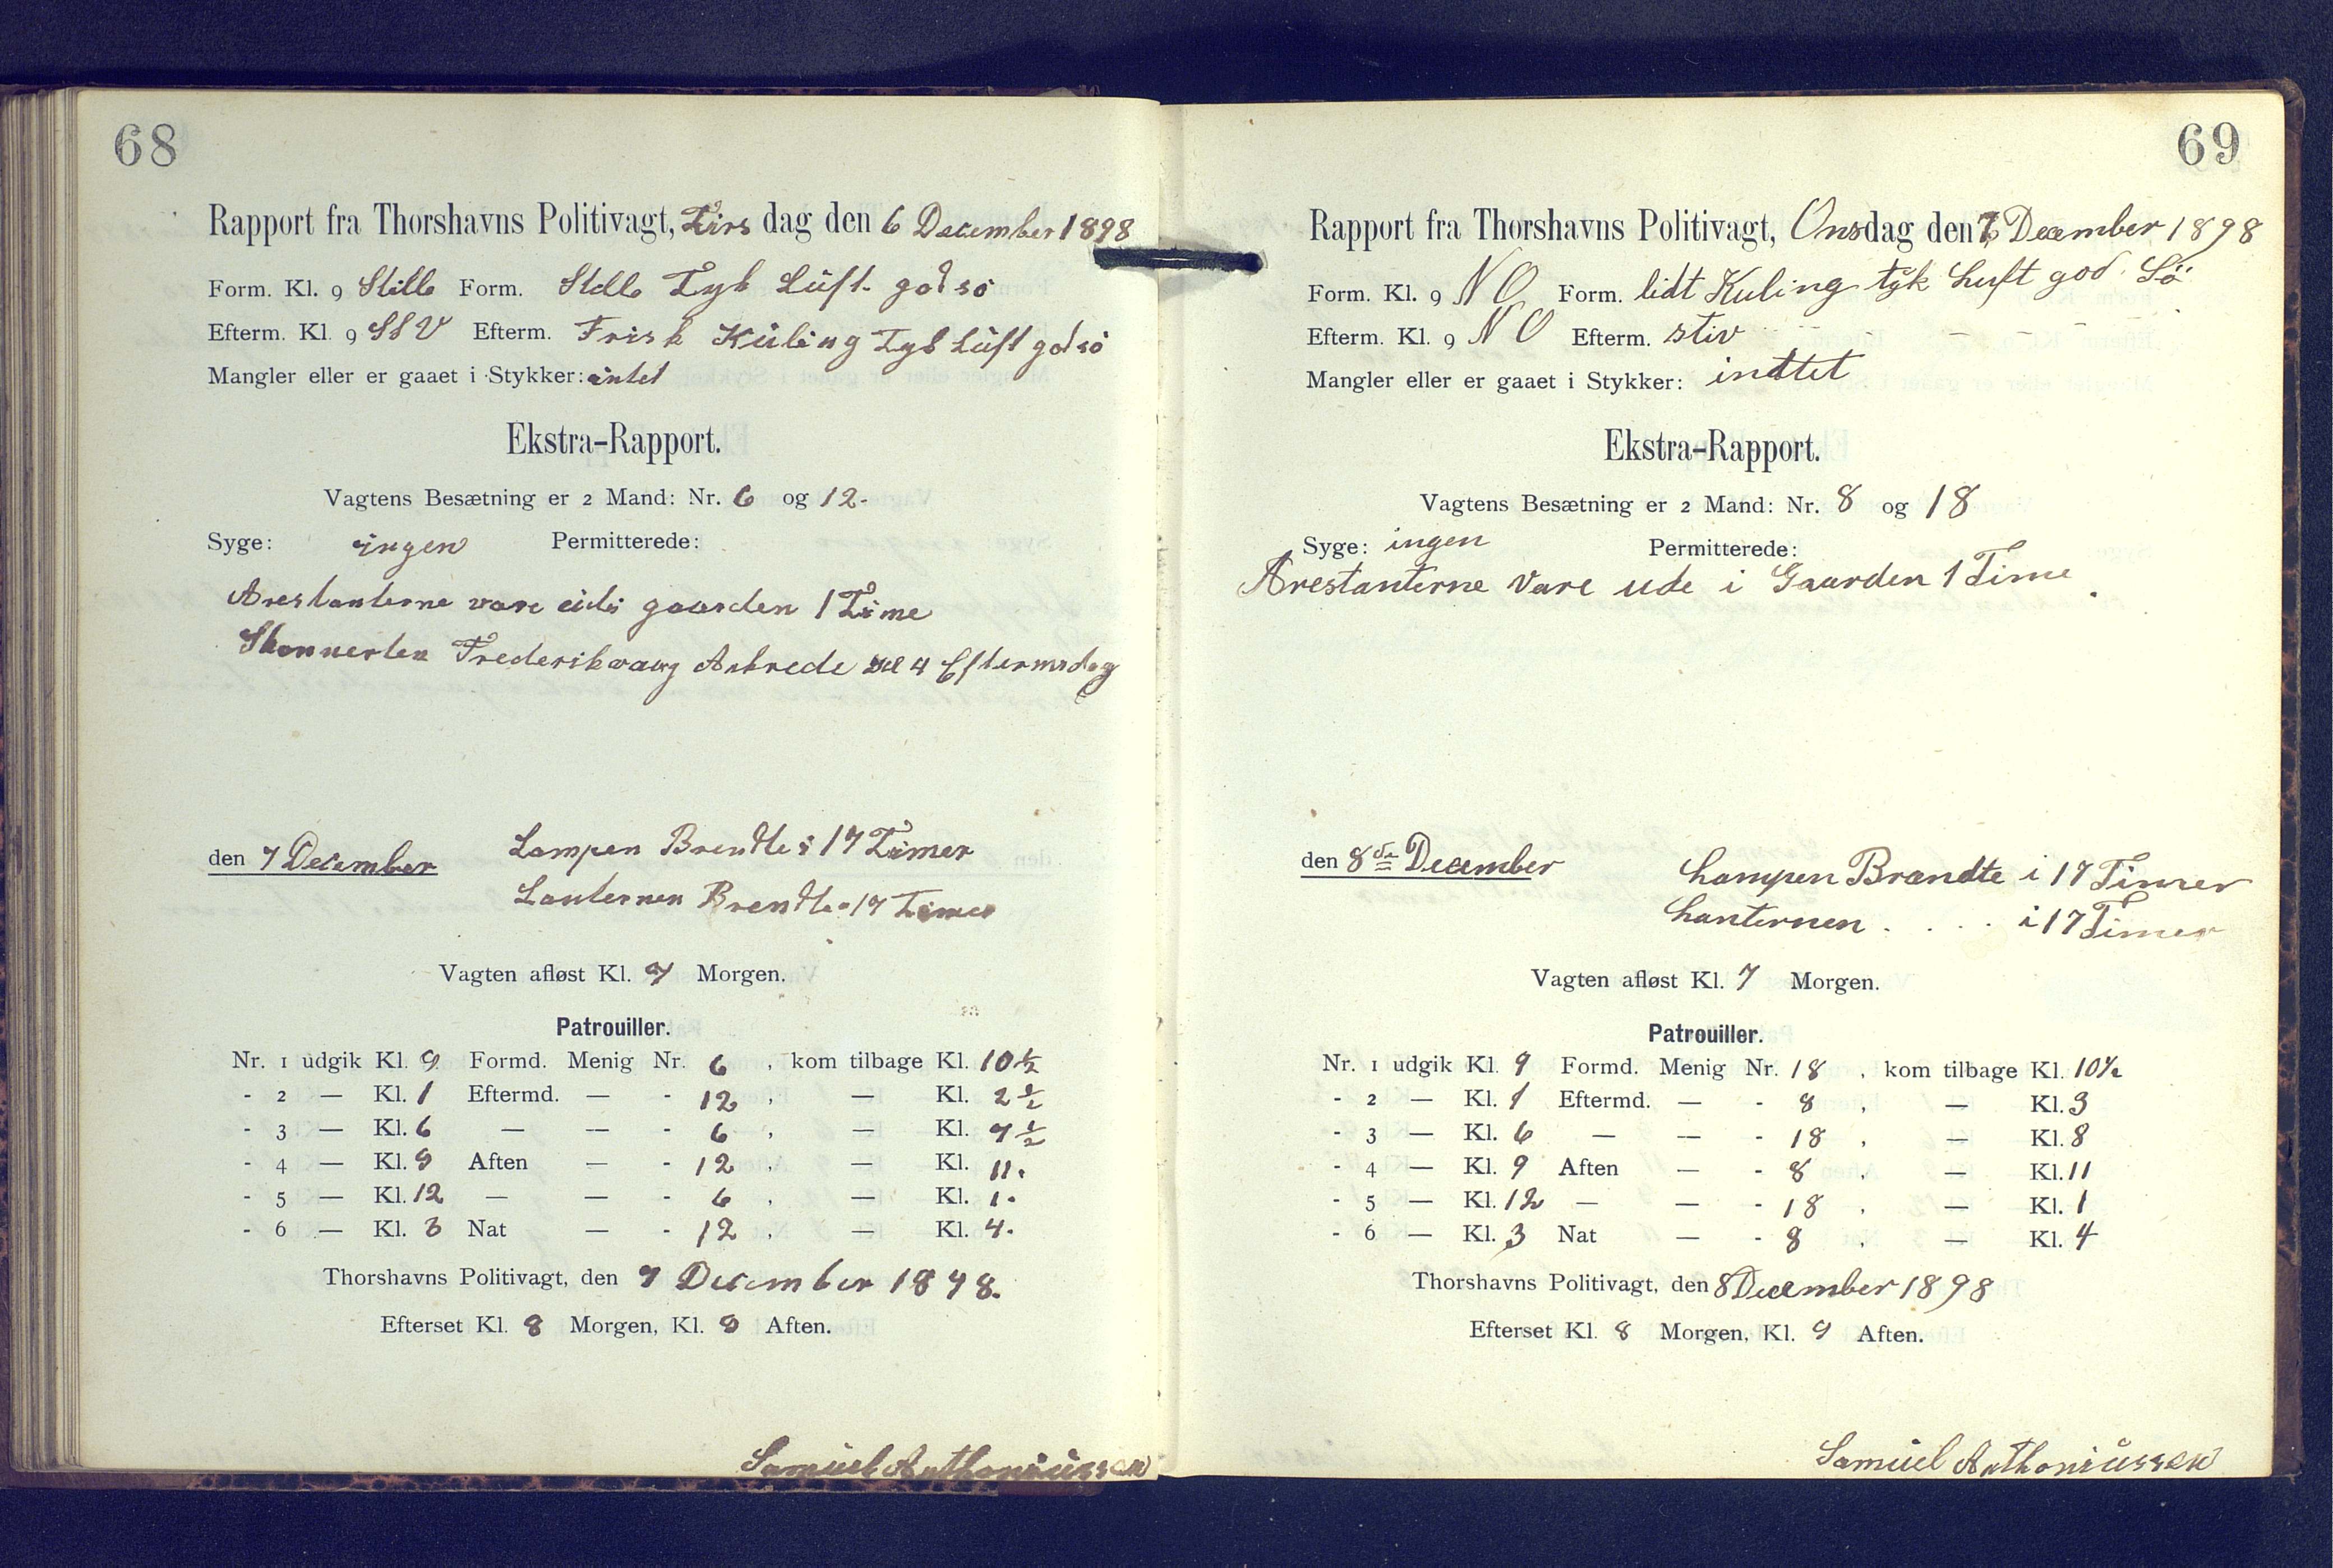 68
Rapport fra Thorshavns Politivagt, Tirs dag den 6 December 1898
Form. Kl. 9 Stille Form. Stille Tyk Lüft. god sö
Efterm. Kl. 9 SSV Efterm. Frisk Küling Tyk Lüft god sö
Mangler eller er gaaet i Stykker: intet
Ekstra-Rapport.
Vagtens Besætning er 2 Mand: Nr. 6 og 12-
Syge: ingen Permitterede:
Arestanterne vare üde gaarden 1 Time
Skonnerten Frederiksvaag Ankrede 4 Eftermedag
den 7 December Lampen Brendte i 17 Timer
Lanternen Brendte - 17 Timer
Vagten afløst Kl. 7 Morgen.
Patrouiller.
Nr. 1 udgik Kl. 9 Formd. Menig Nr. 6 , kom tilbage Kl. 10 ½
- 2 — Kl. 1 Eftermd. — - 12 , — Kl. 2 ½
- 3 — Kl. 6 — — - 6 , — Kl. 7 ½
- 4 — Kl. 9 Aften — - 12 , — Kl. 11.
- 5 — Kl. 12 — — - 6 , — Kl. 1.
- 6 — Kl. 3 Nat — - 12 , — Kl. 4.
Thorshavns Politivagt, den 7 December 1898.
Efterset Kl. 8 Morgen, Kl. 9 Aften.
Samüel Anthoniüssen
69
Rapport fra Thorshavns Politivagt, Onsdag den 7 December 1898
Form. Kl. 9 NO Form. lidt Kuling tyk Luft god Sö
Efterm. Kl. 9 NO Efterm. stiv - - - - -
Mangler eller er gaaet i Stykker: indtet
Ekstra-Rapport.
Vagtens Besætning er 2 Mand: Nr. 8 og 18
Syge: ingen Permitterede:
Arestanterne vare ude i Gaarden 1 Time.
den 8de December Lampen Brandte i 17 Timer
Lanternen . . . . i 17 Timer
Vagten afløst Kl. 7 Morgen.
Patrouiller.
Nr. 1 udgik Kl. 9 Formd. Menig Nr. 18 , kom tilbage Kl. 10½
- 2 — Kl. 1 Eftermd. — - 8 , — Kl. 3
- 3 — Kl. 6 — — - 18 , — Kl. 8
- 4 — Kl. 9 Aften — - 8 , — Kl. 11
- 5 — Kl. 12 — — - 18 , — Kl. 1
- 6 — Kl. 3 Nat — - 8 , — Kl. 4
Thorshavns Politivagt, den 8 December 1898
Efterset Kl. 8 Morgen, Kl. 9 Aften.
Samüel Anthoniüssen